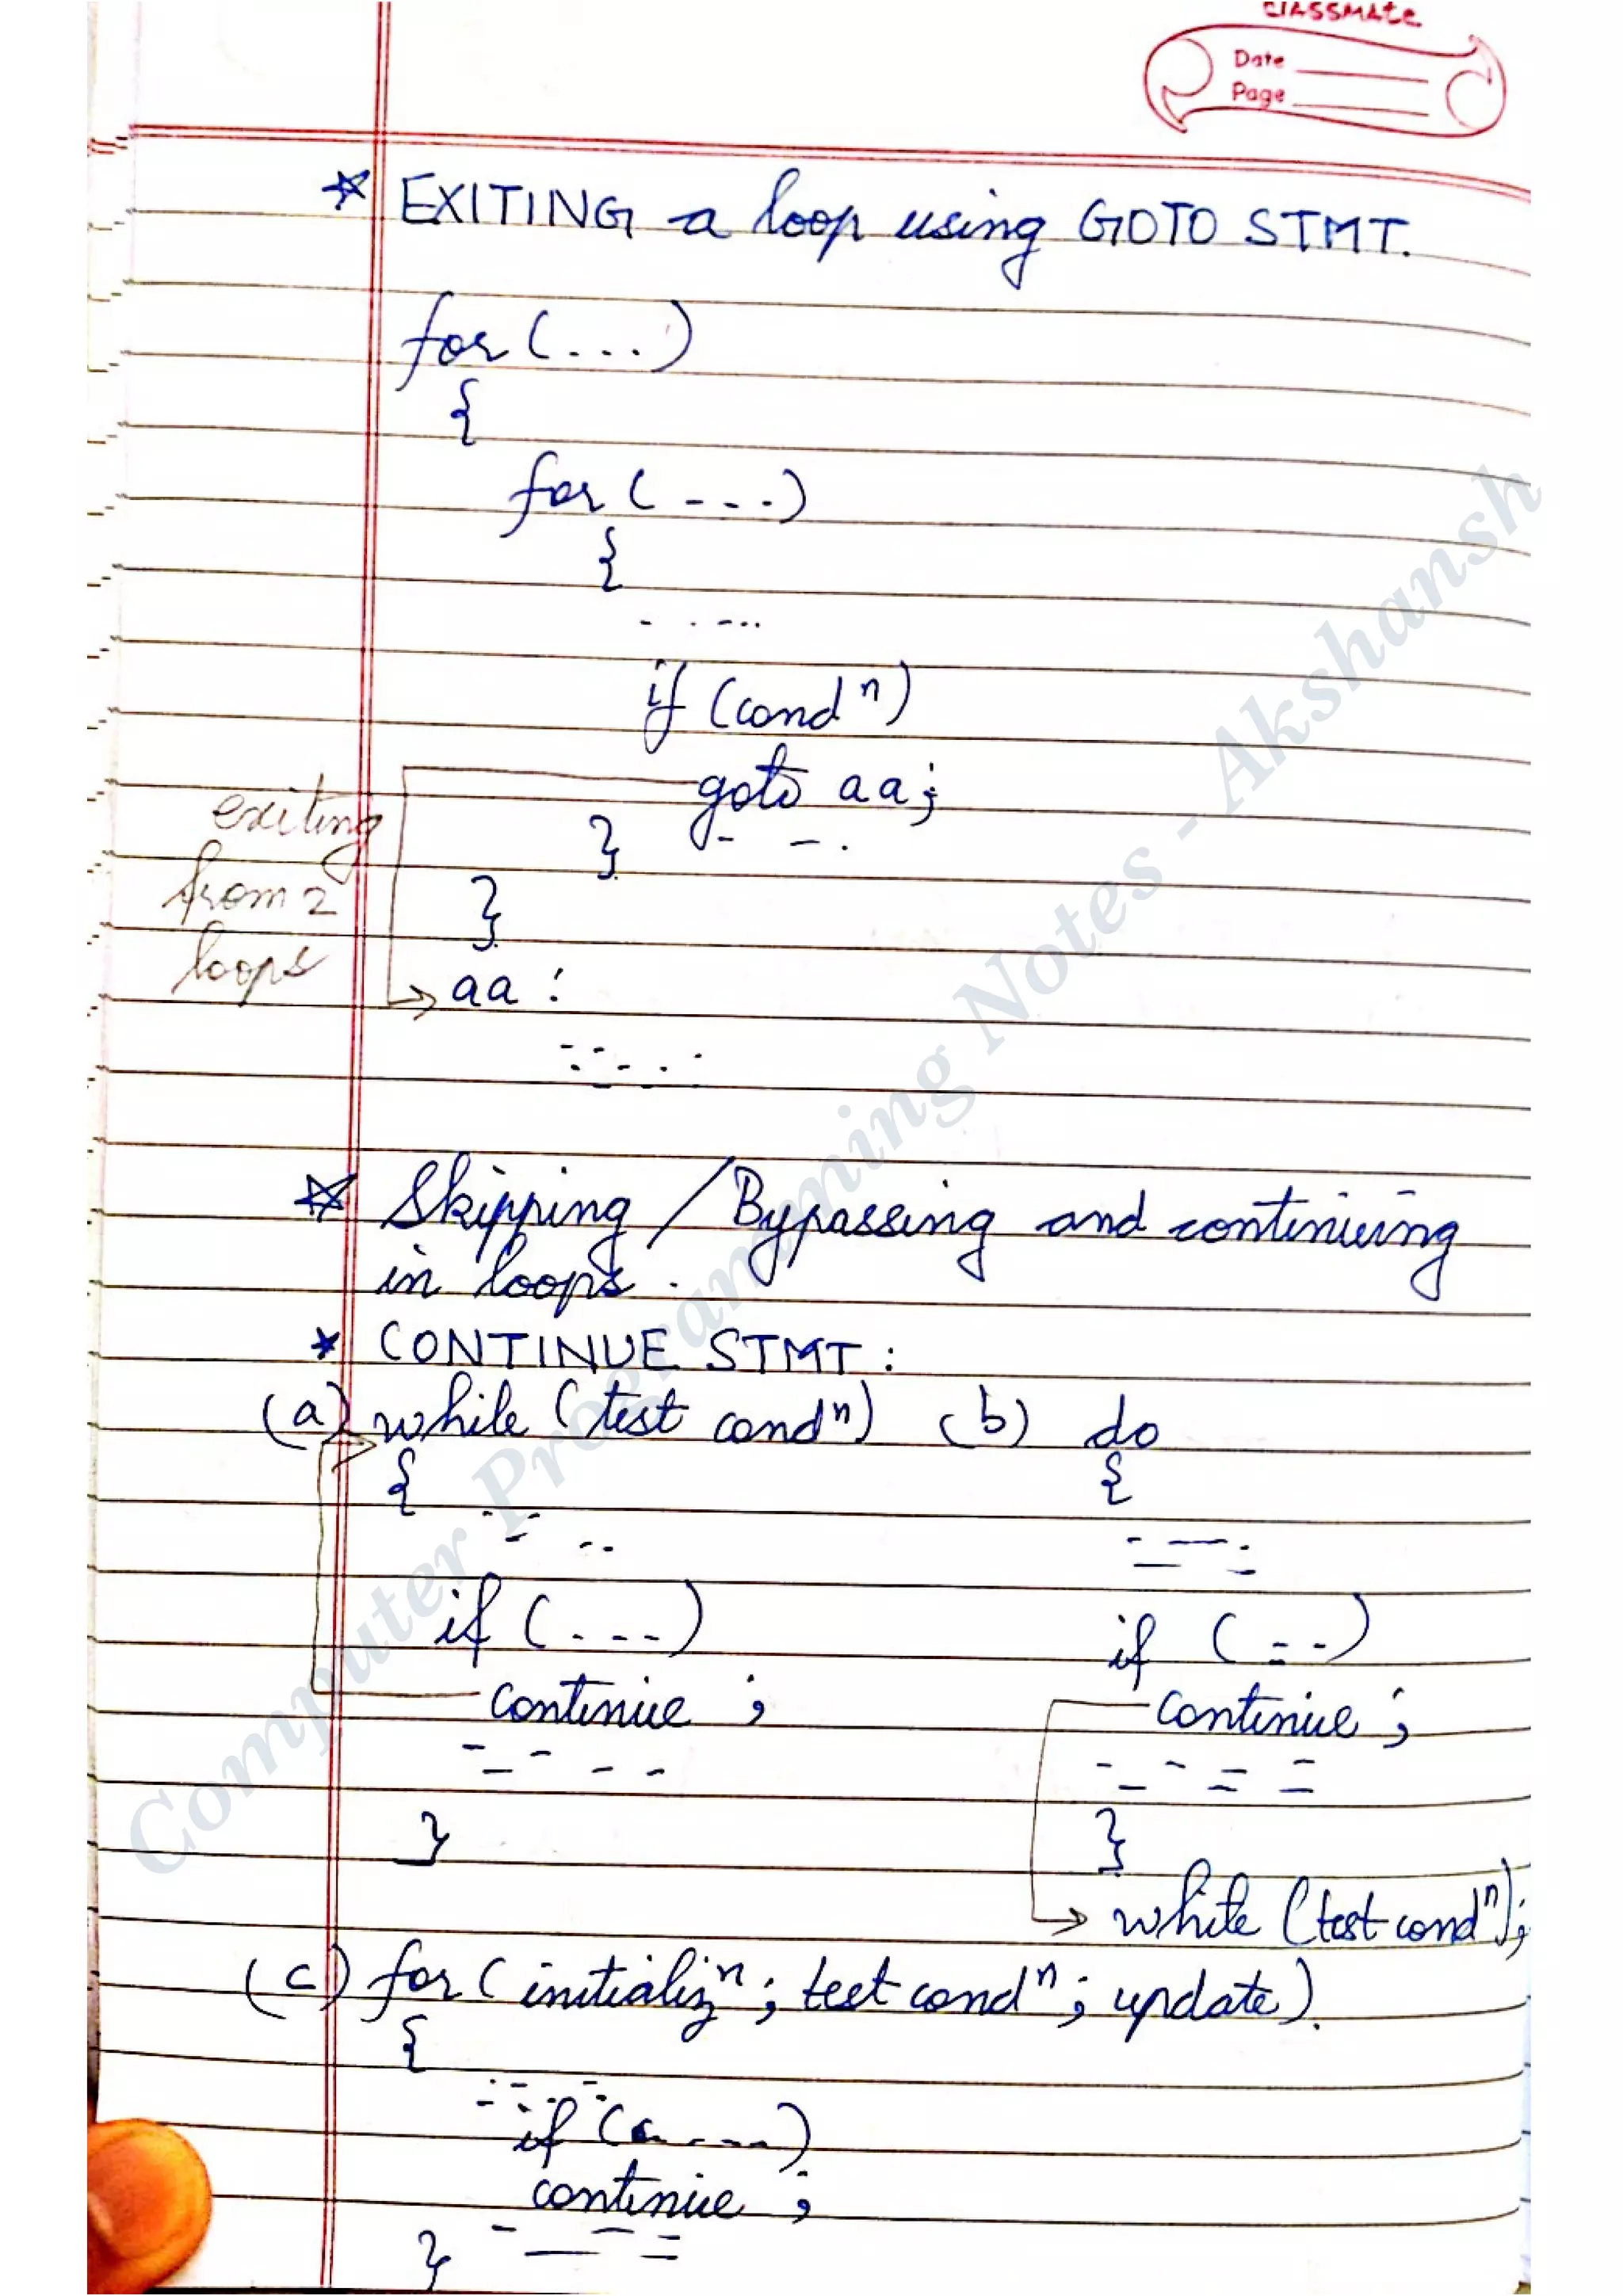 classmate
Date
Page
☆ EXITING a loop using GOTO STMT.
for (...)
{
for (---)
{
- . -...
if (condⁿ)
goto aa;
} - - .
}
aa :
exiting
from 2
loops
☆ Skipping / Bypassing and continuing
in loops.
★ CONTINUE STMT :
(a) while (test condⁿ)
{
if (---)
continue ;
}
(b) do
{
if (---)
continue ;
}
while (test condⁿ);
(c) for (initializⁿ ; test condⁿ ; update).
{
if (----)
continue ;
}
Computer Programming Notes - Akshansh